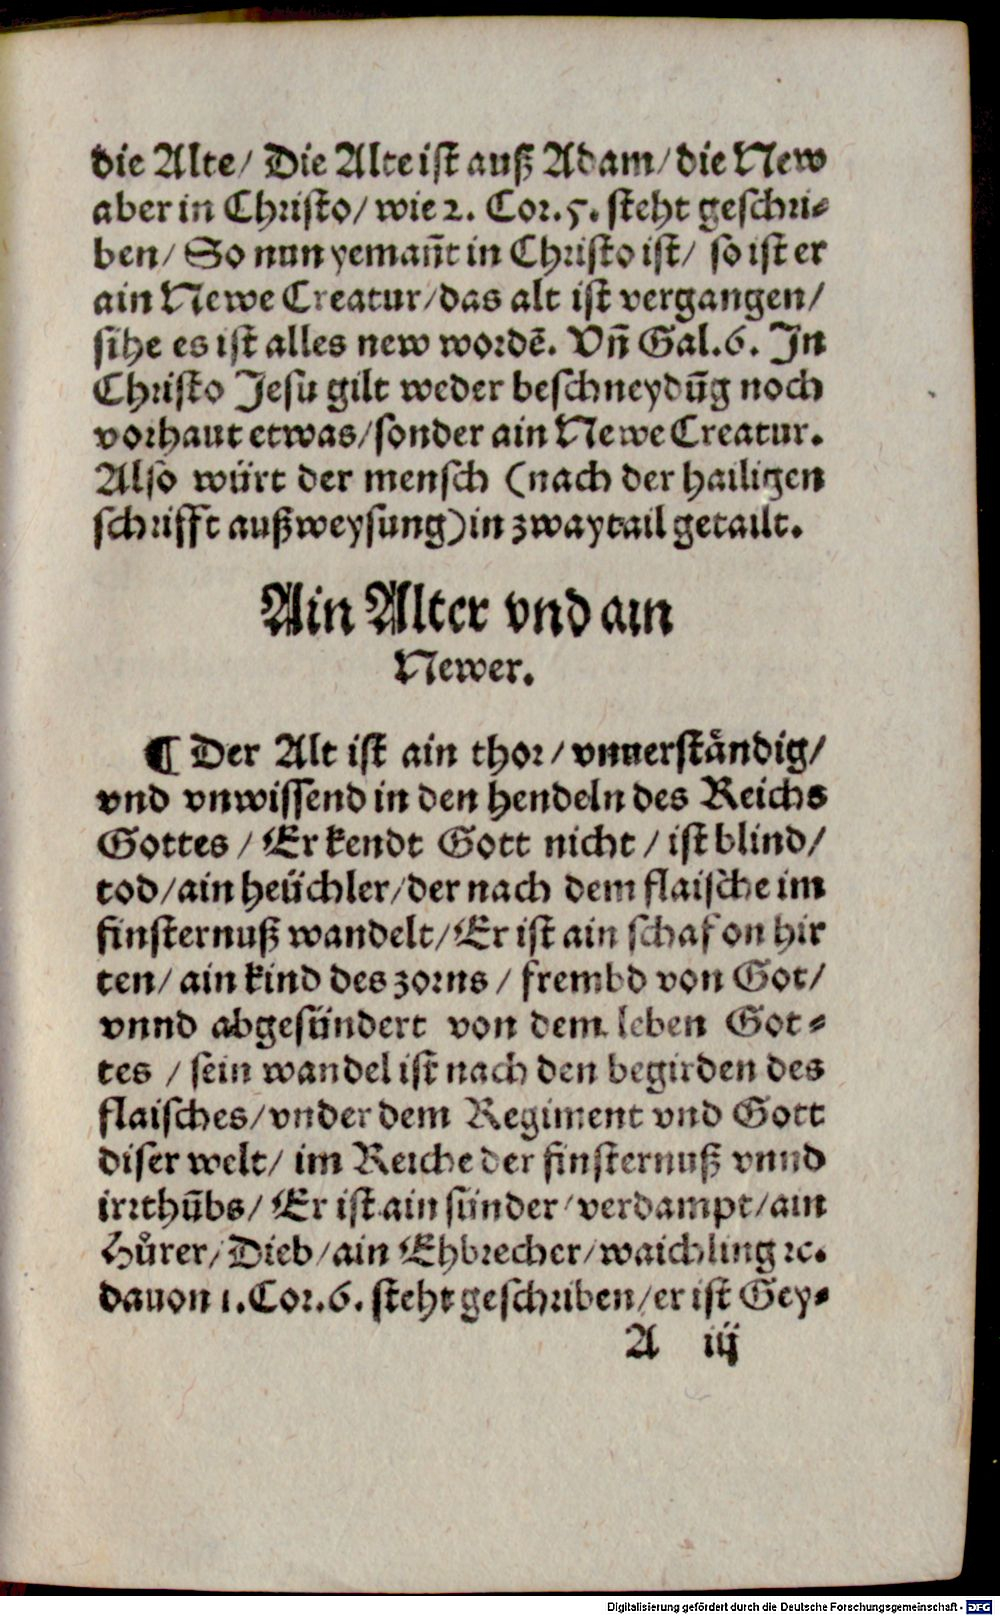 die Alte/ Die Alte ist auß Adam/ die New
aber in Christo/ wie 2. Cor. 5. steht geschri-
ben/ So nun yemañt in Christo ist/ so ist er
ain Newe Creatur/ das alt ist vergangen/
sihe es ist alles new wordē. Vñ Gal. 6. In
Christo Jesu gilt weder beschneydūg noch
vorhaut etwas/ sonder ain Newe Creatur.
Also würt der mensch (nach der hailigen
schrifft außweysung) in zway tail getailt.
Ain Alter vnd ain
Newer.
¶ Der Alt ist ain thor/ vnuerständig/
vnd vnwissend in den hendeln des Reichs
Gottes / Er kendt Gott nicht / ist blind/
tod/ ain heüchler/ der nach dem flaische im
finsternuß wandelt/ Er ist ain schaf on hir
ten/ ain kind des zorns / frembd von Got/
vnnd abgesündert von dem leben Got-
tes / sein wandel ist nach den begirden des
flaisches/ vnder dem Regiment vnd Gott
diser welt/ im Reiche der finsternuß vnnd
irrthūbs/ Er ist ain sünder/ verdampt/ ain
Hůrer/ Dieb/ ain Ehbrecher/ waichling ꝛc.
dauon 1. Cor. 6. steht geschriben/ er ist Gey-
A iij
Digitalisierung gefördert durch die Deutsche Forschungsgemeinschaft - DFG